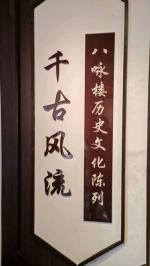 八咏楼历史文化陈列
千古风流